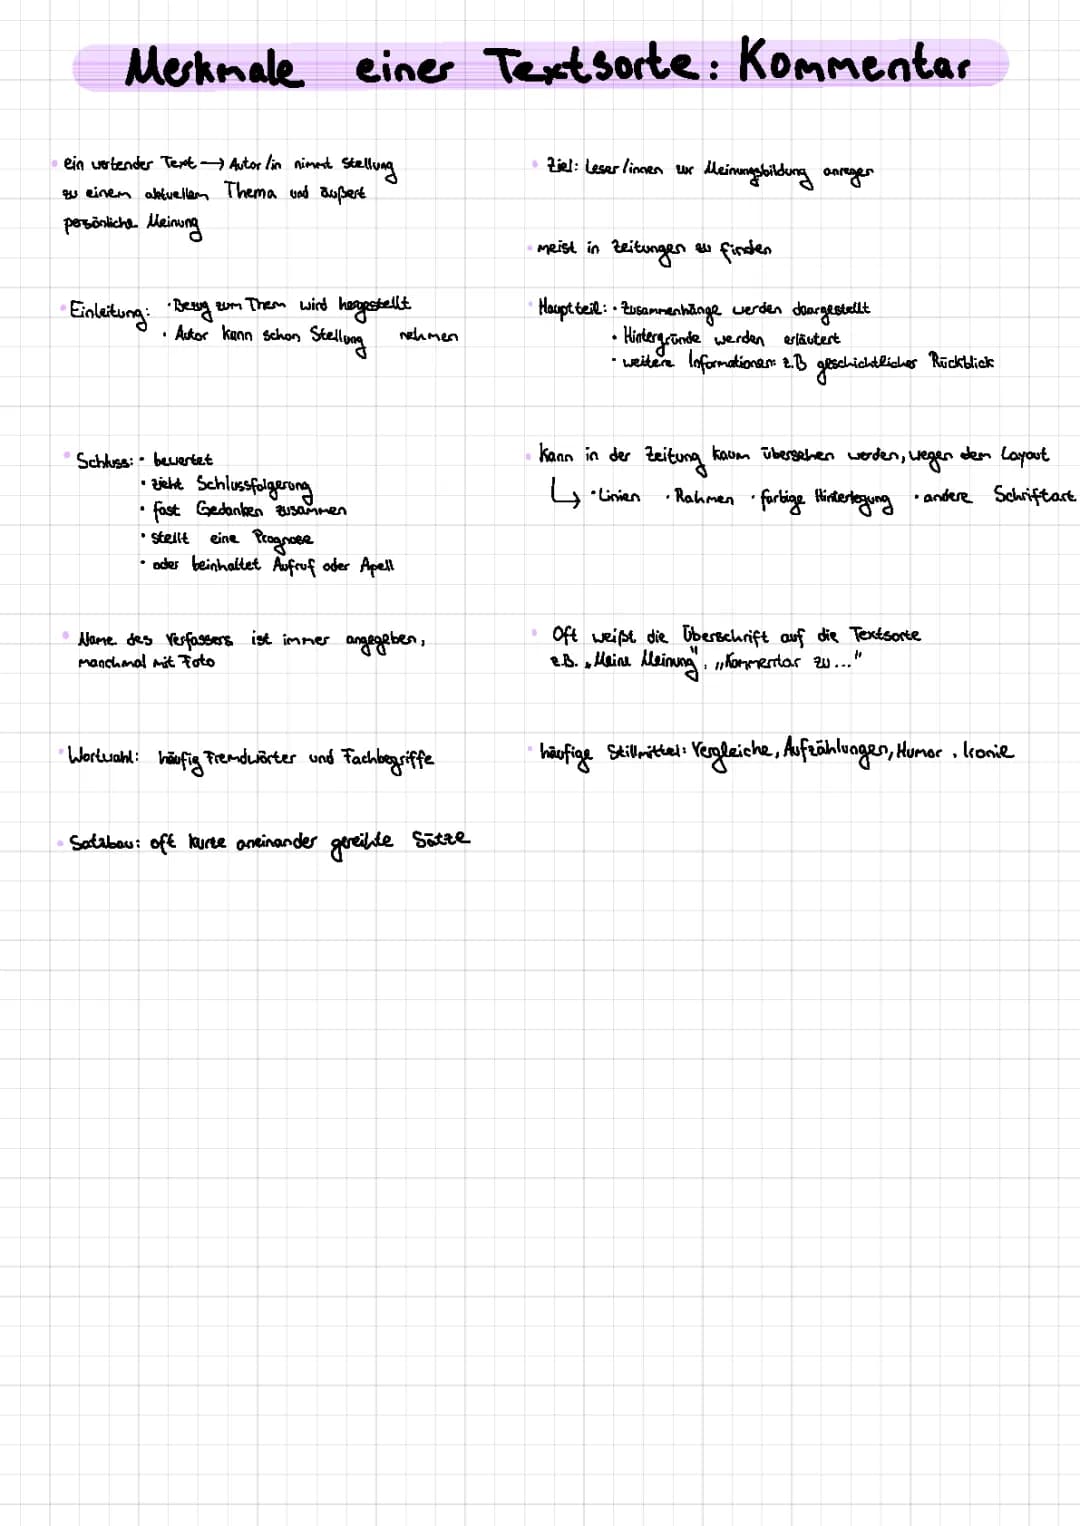 Merkmale einer Textsorte: Kommentar
• ein wertender Text → Autor/in nimmt Stellung
zu einem aktuellem Thema und äußert
persönliche Meinung
• Ziel: Leser/innen zur Meinungsbildung anregen
• meist in Zeitungen zu finden
• Einleitung: • Bezug zum Them wird hergestellt
• Autor kann schon Stellung nehmen
• Hauptteil: • Zusammenhänge werden doargestellt
• Hintergründe werden erläutert
• weitere Informationen: z.B geschichtlicher Rückblick
• Schluss: • bewertet
• zieht Schlussfolgerung
• fast Gedanken zusammen
• stellt eine Prognose
• oder beinhaltet Aufruf oder Apell
• kann in der Zeitung kaum übersehen werden, wegen dem Layout
↳ • Linien • Rahmen • farbige Hinterlegung • andere Schriftart
• Name des Verfassers ist immer angegeben,
manchmal mit Foto
• Oft weißt die Überschrift auf die Textsorte
z.B. „Meine Meinung", „Kommentar zu..."
• Wortwahl: häufig Fremdwörter und Fachbegriffe
• häufige Stillmittel: Vergleiche, Aufzählungen, Humor, Ironie
• Satzbau: oft kurze aneinander gereihte Sätze